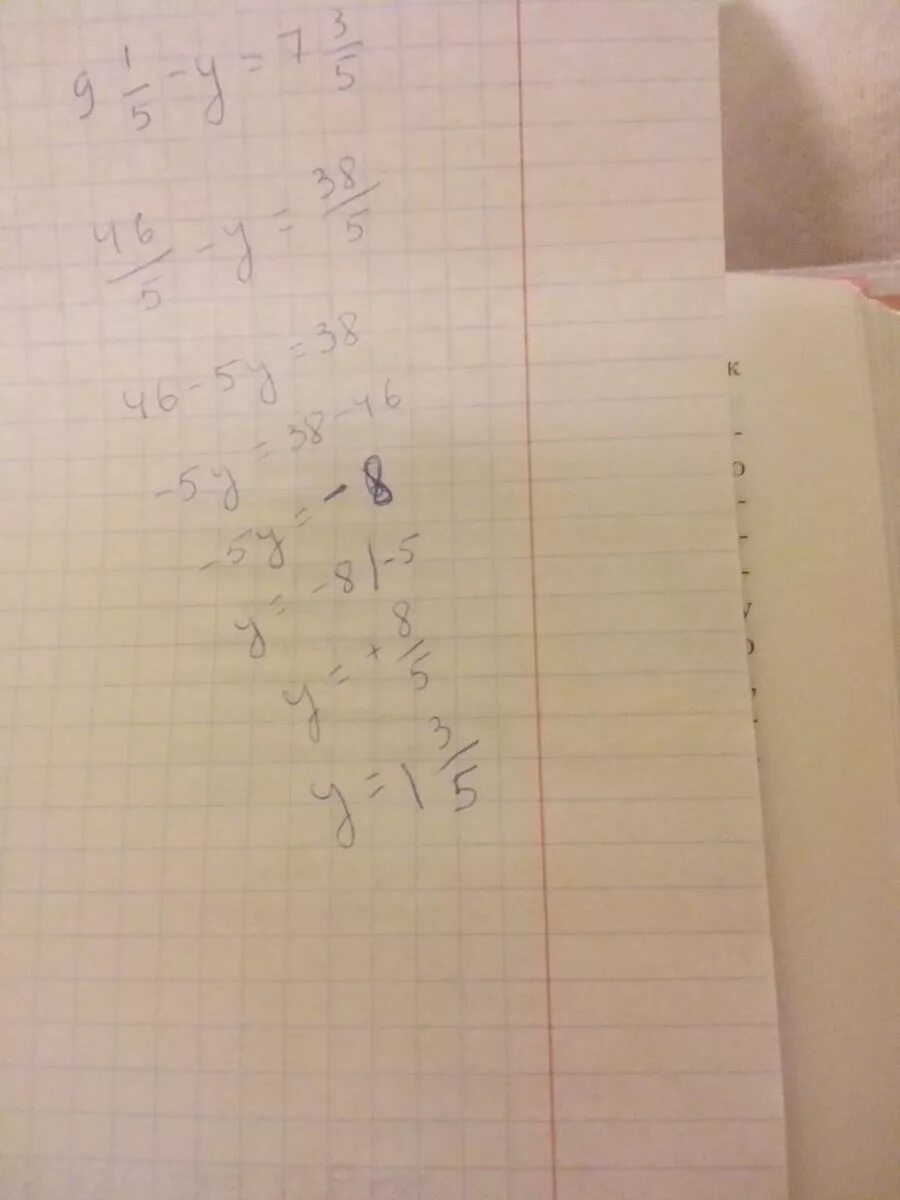 9 1/5 - y = 7 3/5
46/5 - y = 38/5
46 - 5y = 38
-5y = 38 - 46
-5y = -8
y = -8 | -5
y = + 8/5
y = 1 3/5
к
-
о
-
-
-
у